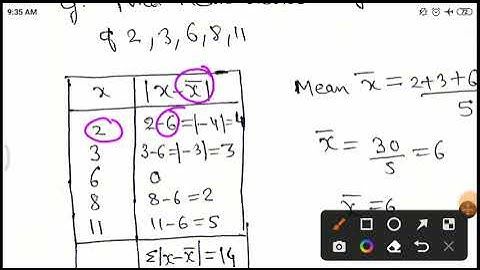 9:35 AM
of 2, 3, 6, 8, 11
x |x-x̄|
2 2-6=|-4|=4
3 3-6=|-3|=3
6 0
8 8-6=2
11 11-6=5
Σ|x-x̄|=14
Mean x̄ = 2+3+6
5
x̄ = 30/5 = 6
x̄ = 6